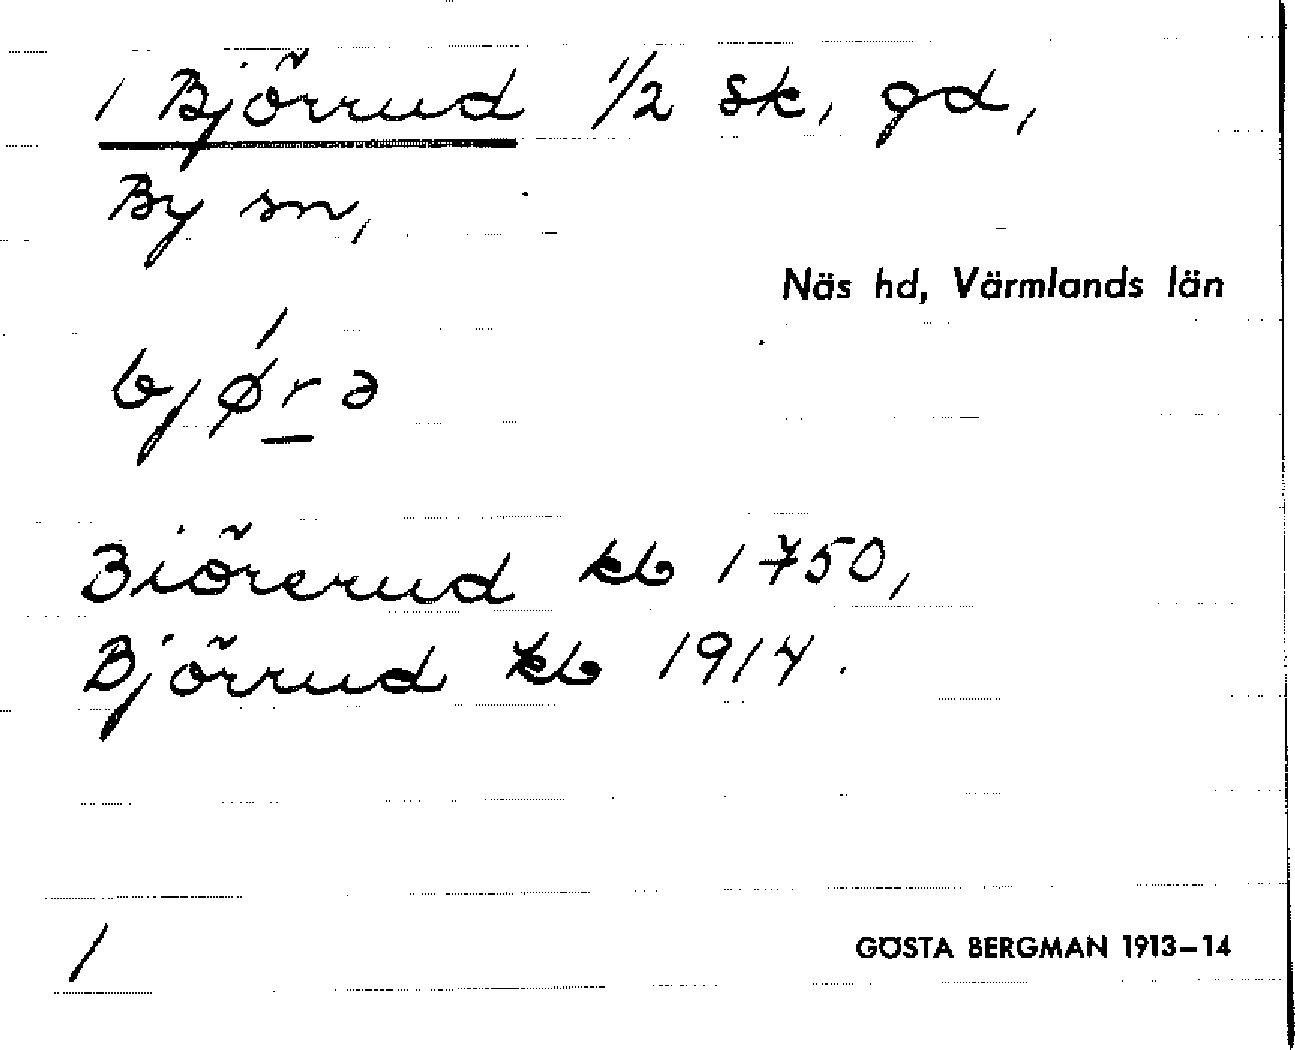 1 Björrud 1/2 sk, gd,
By sn,
Näs hd, Värmlands län
bjø´rə
Biörerud kb 1750,
Björrud kb 1914.
1
GÖSTA BERGMAN 1913–14